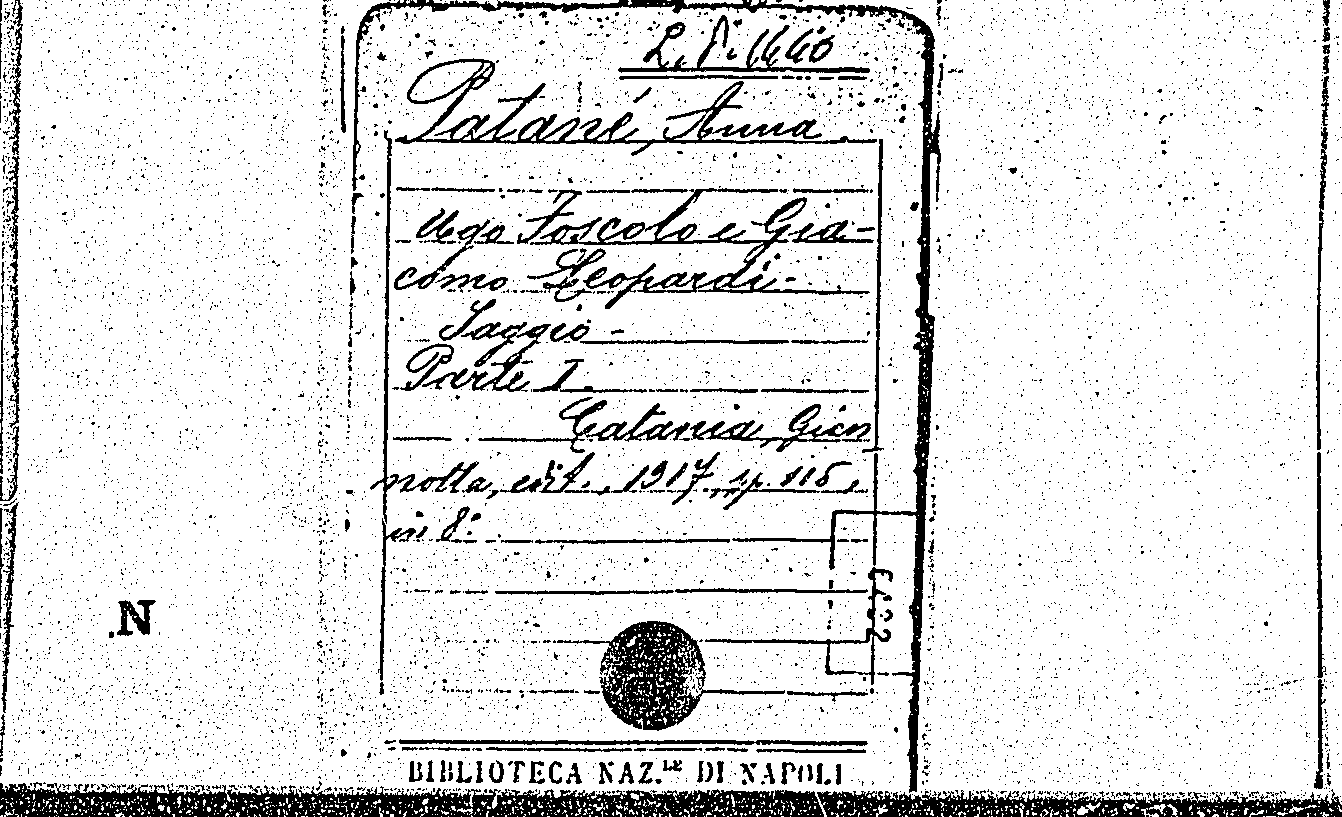 L. P. 1440
Patané, Anna.
Ugo Foscolo e Gia-
como Leopardi -
Saggio -
Parte I.
Catania, Gian
notta, edit., 1917, pp. 115,
in 8°.
.N
BIBLIOTECA NAZ.LE DI NAPOLI